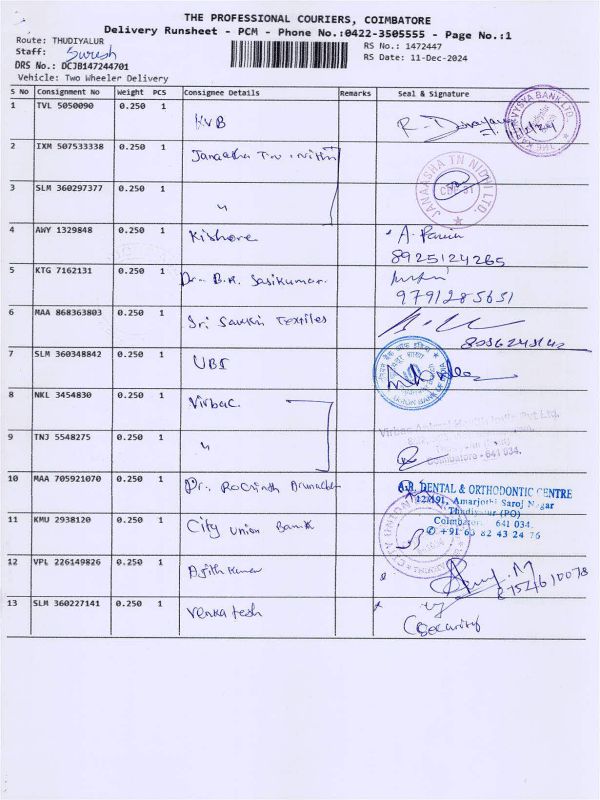 THE PROFESSIONAL COURIERS, COIMBATORE
Delivery Runsheet - PCM - Phone No.:0422-3505555 - Page No.:1
Route: THUDIYALUR
RS No.: 1472447
Staff: Suresh
RS Date: 11-Dec-2024
DRS No.: DCJB147244701
Vehicle: Two Wheeler Delivery
S No Consignment No Weight PCS Consignee Details Remarks Seal & Signature
1 TVL 5050090 0.250 1 KVB
2 IXM 507533338 0.250 1 Janaaksha TN Nidhi
JANAAKSHA TN NIDHI LTD.
3 SLM 360297377 0.250 1 "
4 AWY 1329848 0.250 1 Kishore A.
8925124265
5 KTG 7162131 0.250 1 Dr. B.K. Sasikumar.
9791285651
6 MAA 868363803 0.250 1 Sri Textiles
7 SLM 360348842 0.250 1 UBI
8 NKL 3454830 0.250 1 Virbac.
Virbac Animal Health India Pvt Ltd,
9 TNJ 5548275 0.250 1 "
Coimbatore - 641 034.
10 MAA 705921070 0.250 1 Dr.
DENTAL & ORTHODONTIC CENTRE
12/191, Amarjothi Saroj Nagar
Thudiyalur (PO)
Coimbatore 641 034.
11 KMU 2938120 0.250 1 City Union Bank
12 VPL 226149826 0.250 1 Ajith Kumar
13 SLM 360227141 0.250 1 Venkatesh
Security